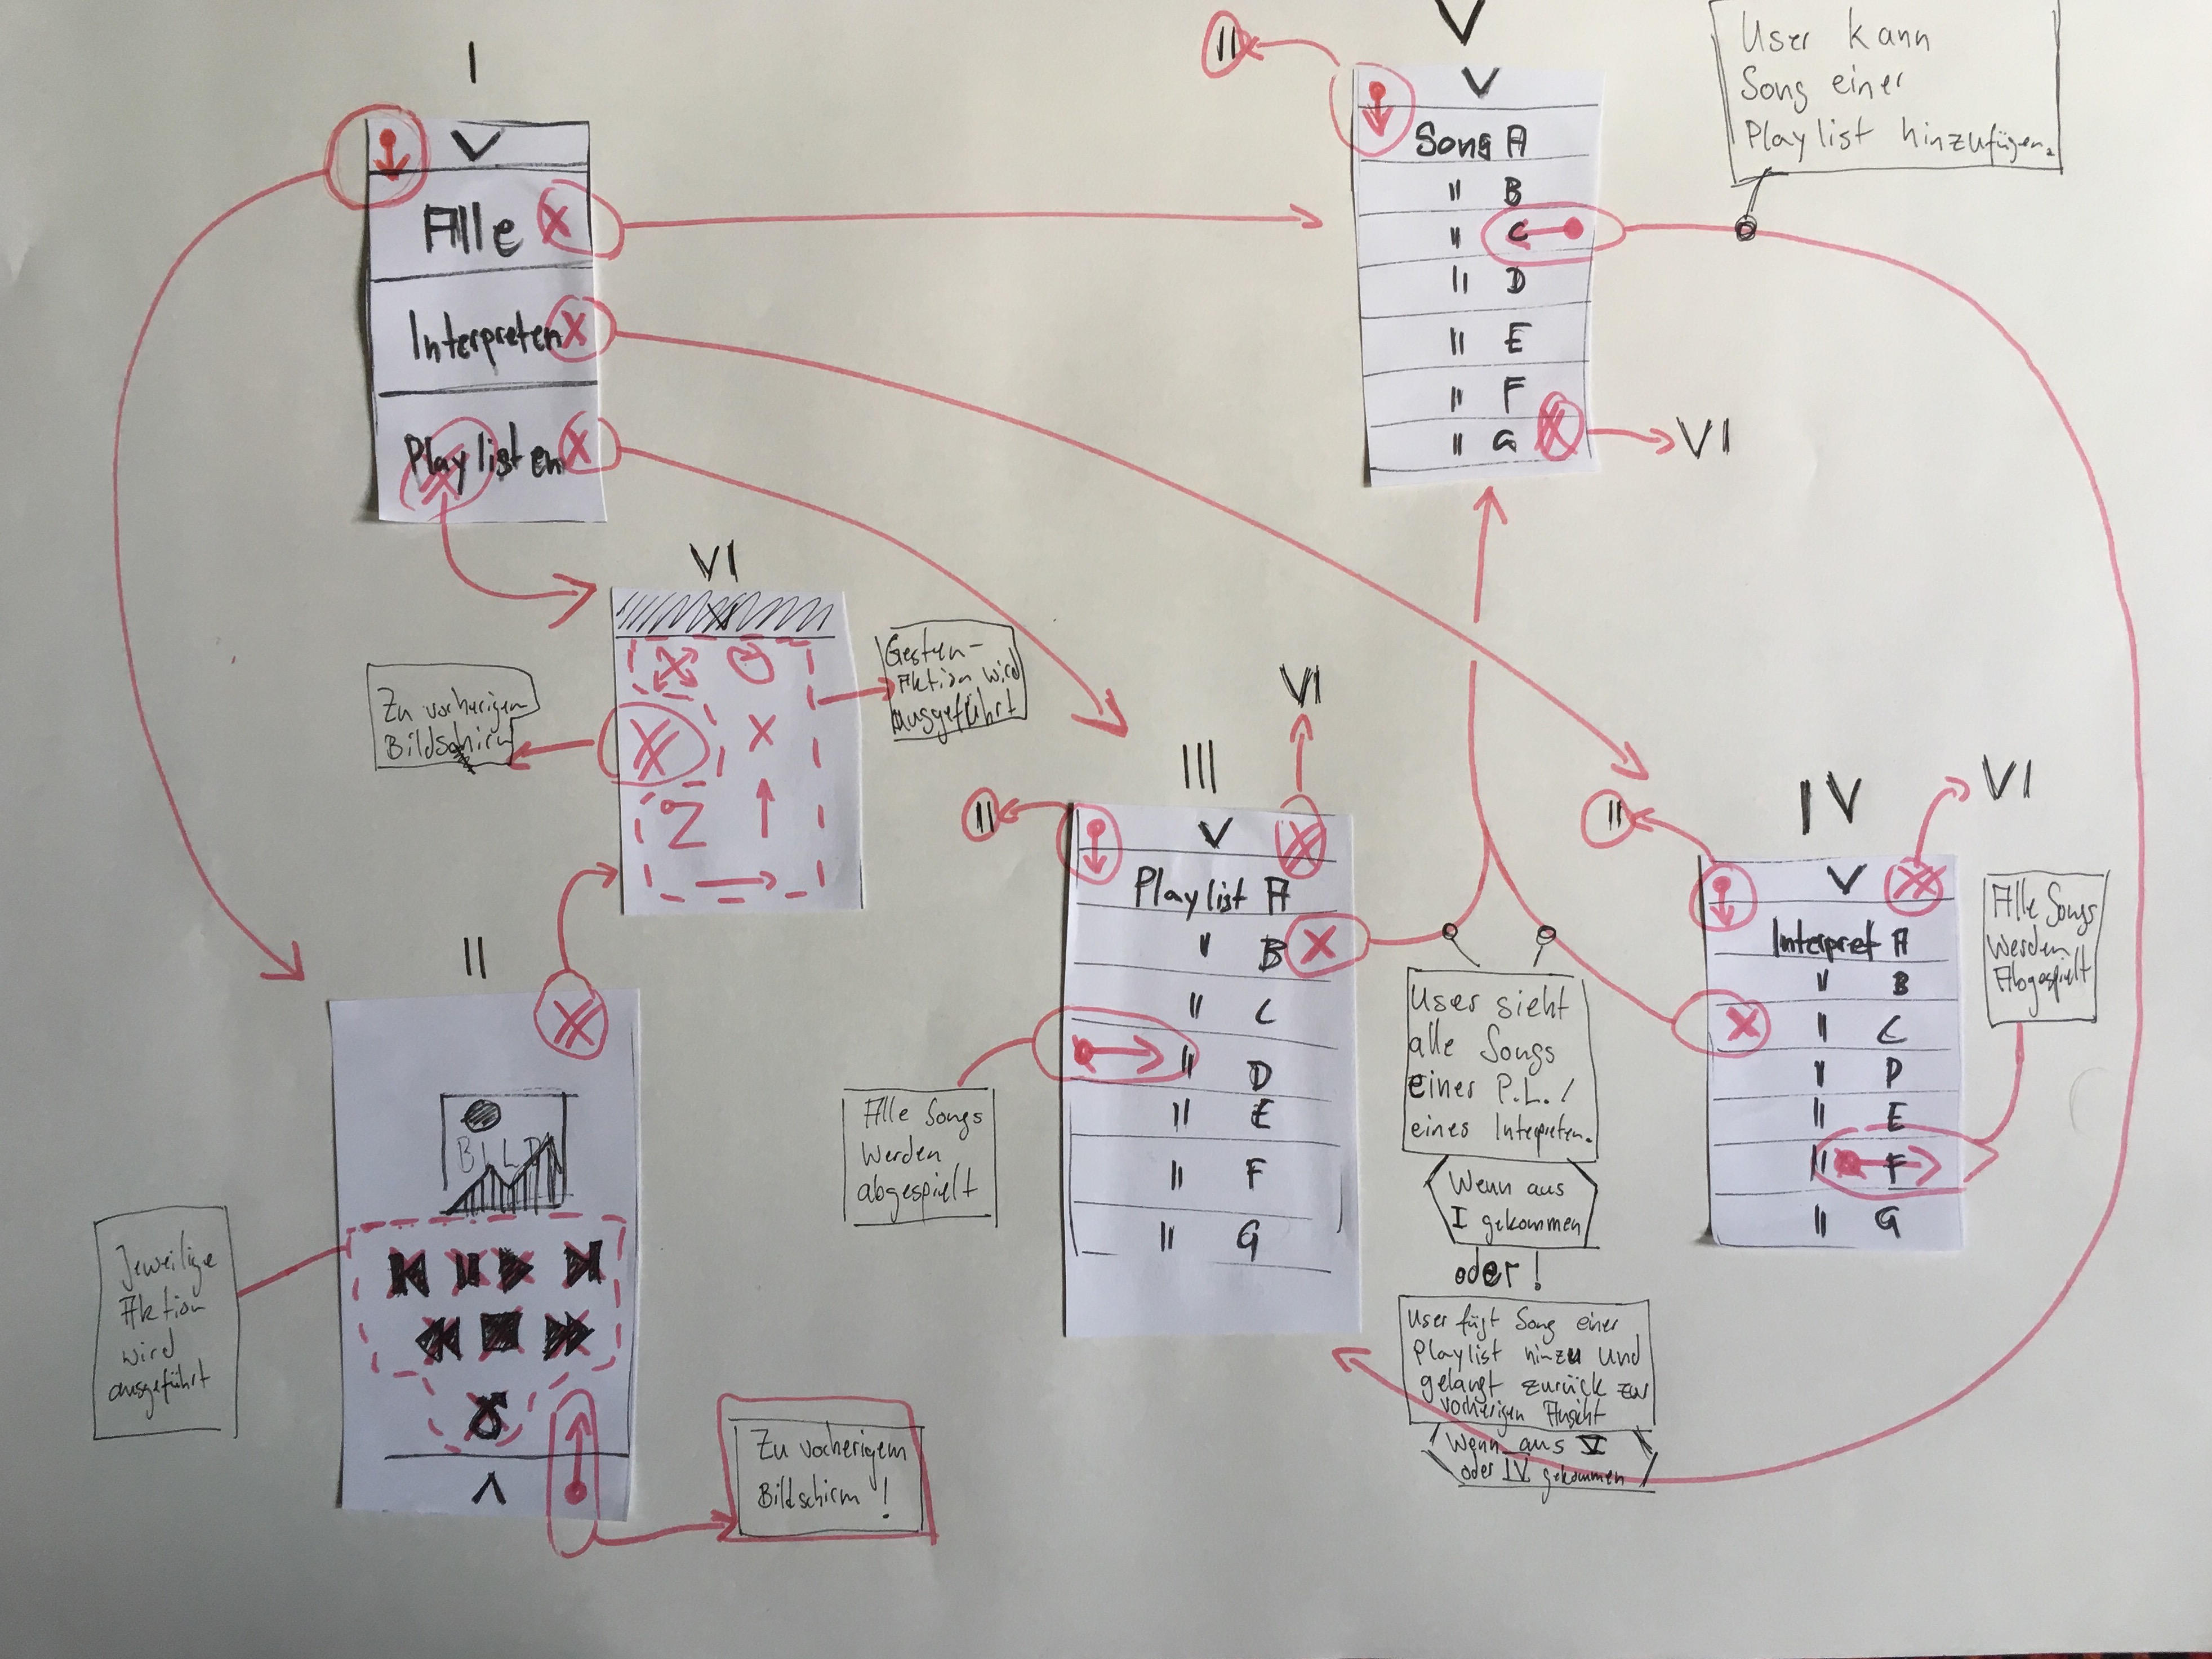 I
V
Alle
Interpreten
Playlisten
II
V
V
Song A
" B
" C
" D
" E
" F
" G
VI
User kann
Song einer
Playlist hinzufügen.
VI
Zu vorherigen
Bildschirm
Gesten-
Aktion wird
ausgeführt
II
BILD
Jeweilige
Aktion
wird
ausgeführt
Zu vorherigem
Bildschirm!
III
VI
II
V
Playlist A
" B
" C
" D
" E
" F
" G
Alle Songs
werden
abgespielt
User sieht
alle Songs
einer P.L./
eines Interpreten.
Wenn aus
I gekommen
oder!
User fügt Song einer
Playlist hinzu und
gelangt zurück zur
vorherigen Ansicht
Wenn aus V
oder IV gekommen
IV
VI
II
V
Interpret A
" B
" C
" D
" E
" F
" G
Alle Songs
werden
Abgespielt